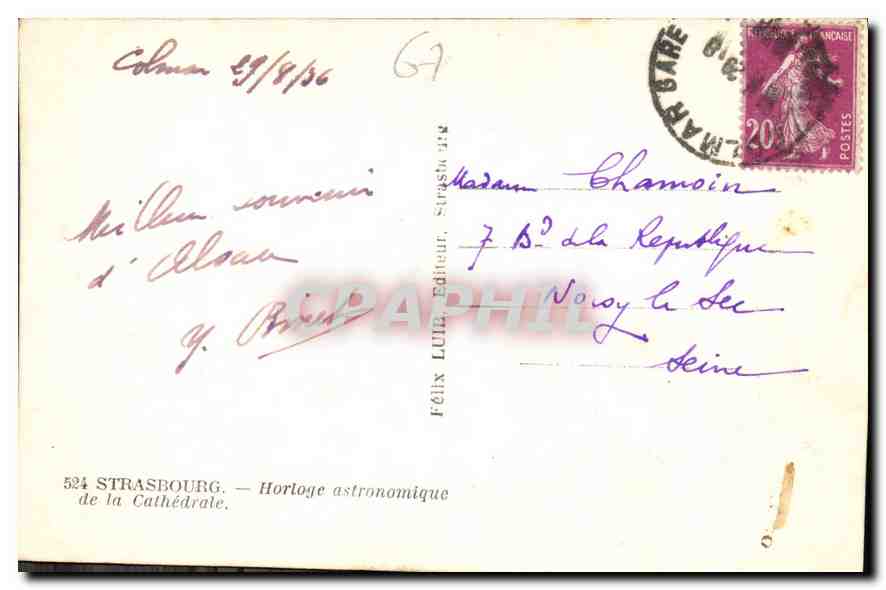 Colmar 29/8/36
67
COLMAR GARE
REPUBLIQUE FRANÇAISE
20
POSTES
Meilleur souvenir
d'Alsace
Y.
Madame Chamoin
7 Bd de la Republique
Noisy le Sec
Seine
Félix LUIB, Editeur, Strasbourg
CPAPHIL
524 STRASBOURG. — Horloge astronomique
de la Cathédrale.